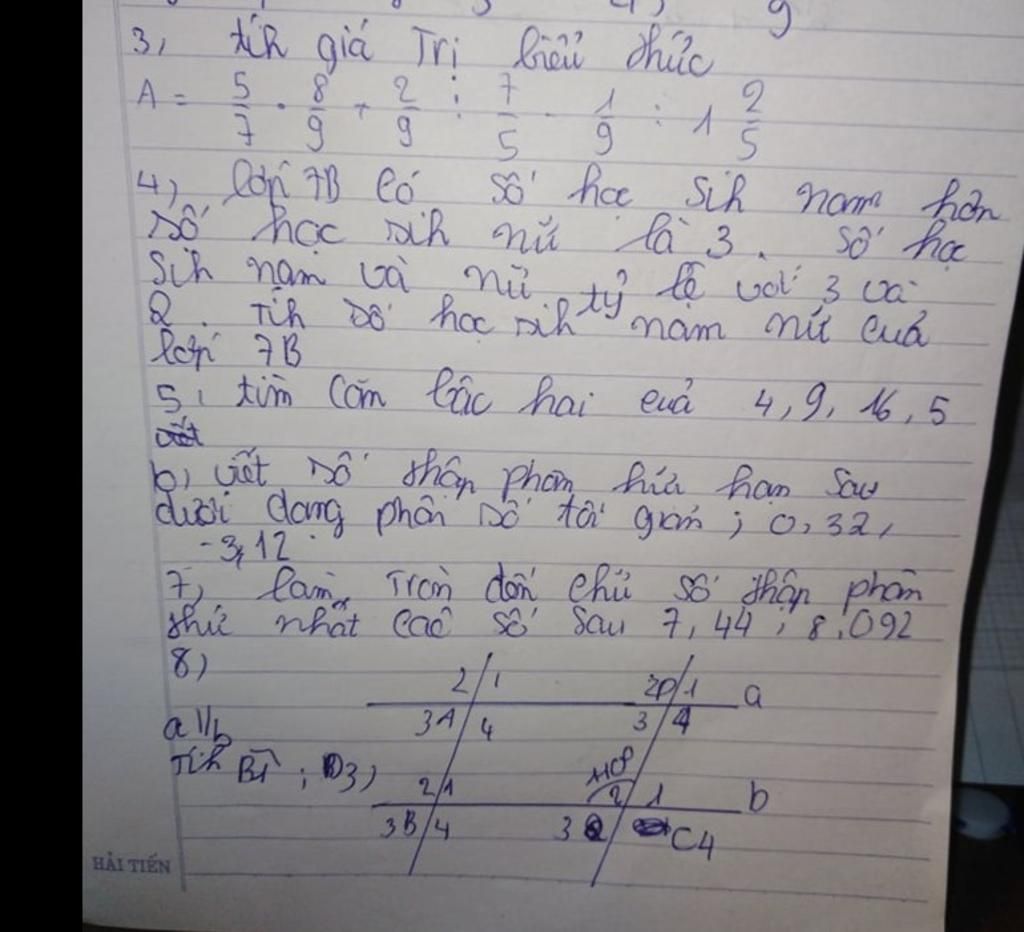 3, tíh giá Trị biểu thức
A = 5/7 . 8/9 + 2/9 : 7/5 - 1/9 : 1 2/5
4, lớp 7B có số học sih nam hơn
số học sih nữ là 3. số học
sih nam và nữ tỷ lệ với 3 và
2. Tíh số học sih nam nữ của
lớp 7B
5, tìm Căn bậc hai của 4, 9, 16, 5
b, viết số thập phân hữu hạn sau
dưới dạng phân số tối giản; 0,32,
-3,12.
7, làm Tròn đến chữ số thập phân
thứ nhất các số sau 7,44; 8,092
8)
2 1 2D 1 a
3A 4 3 4
a // b
Tíh B1 ; D3)
2 1 2 1 b
3B 4 3 C4
HẢI TIẾN